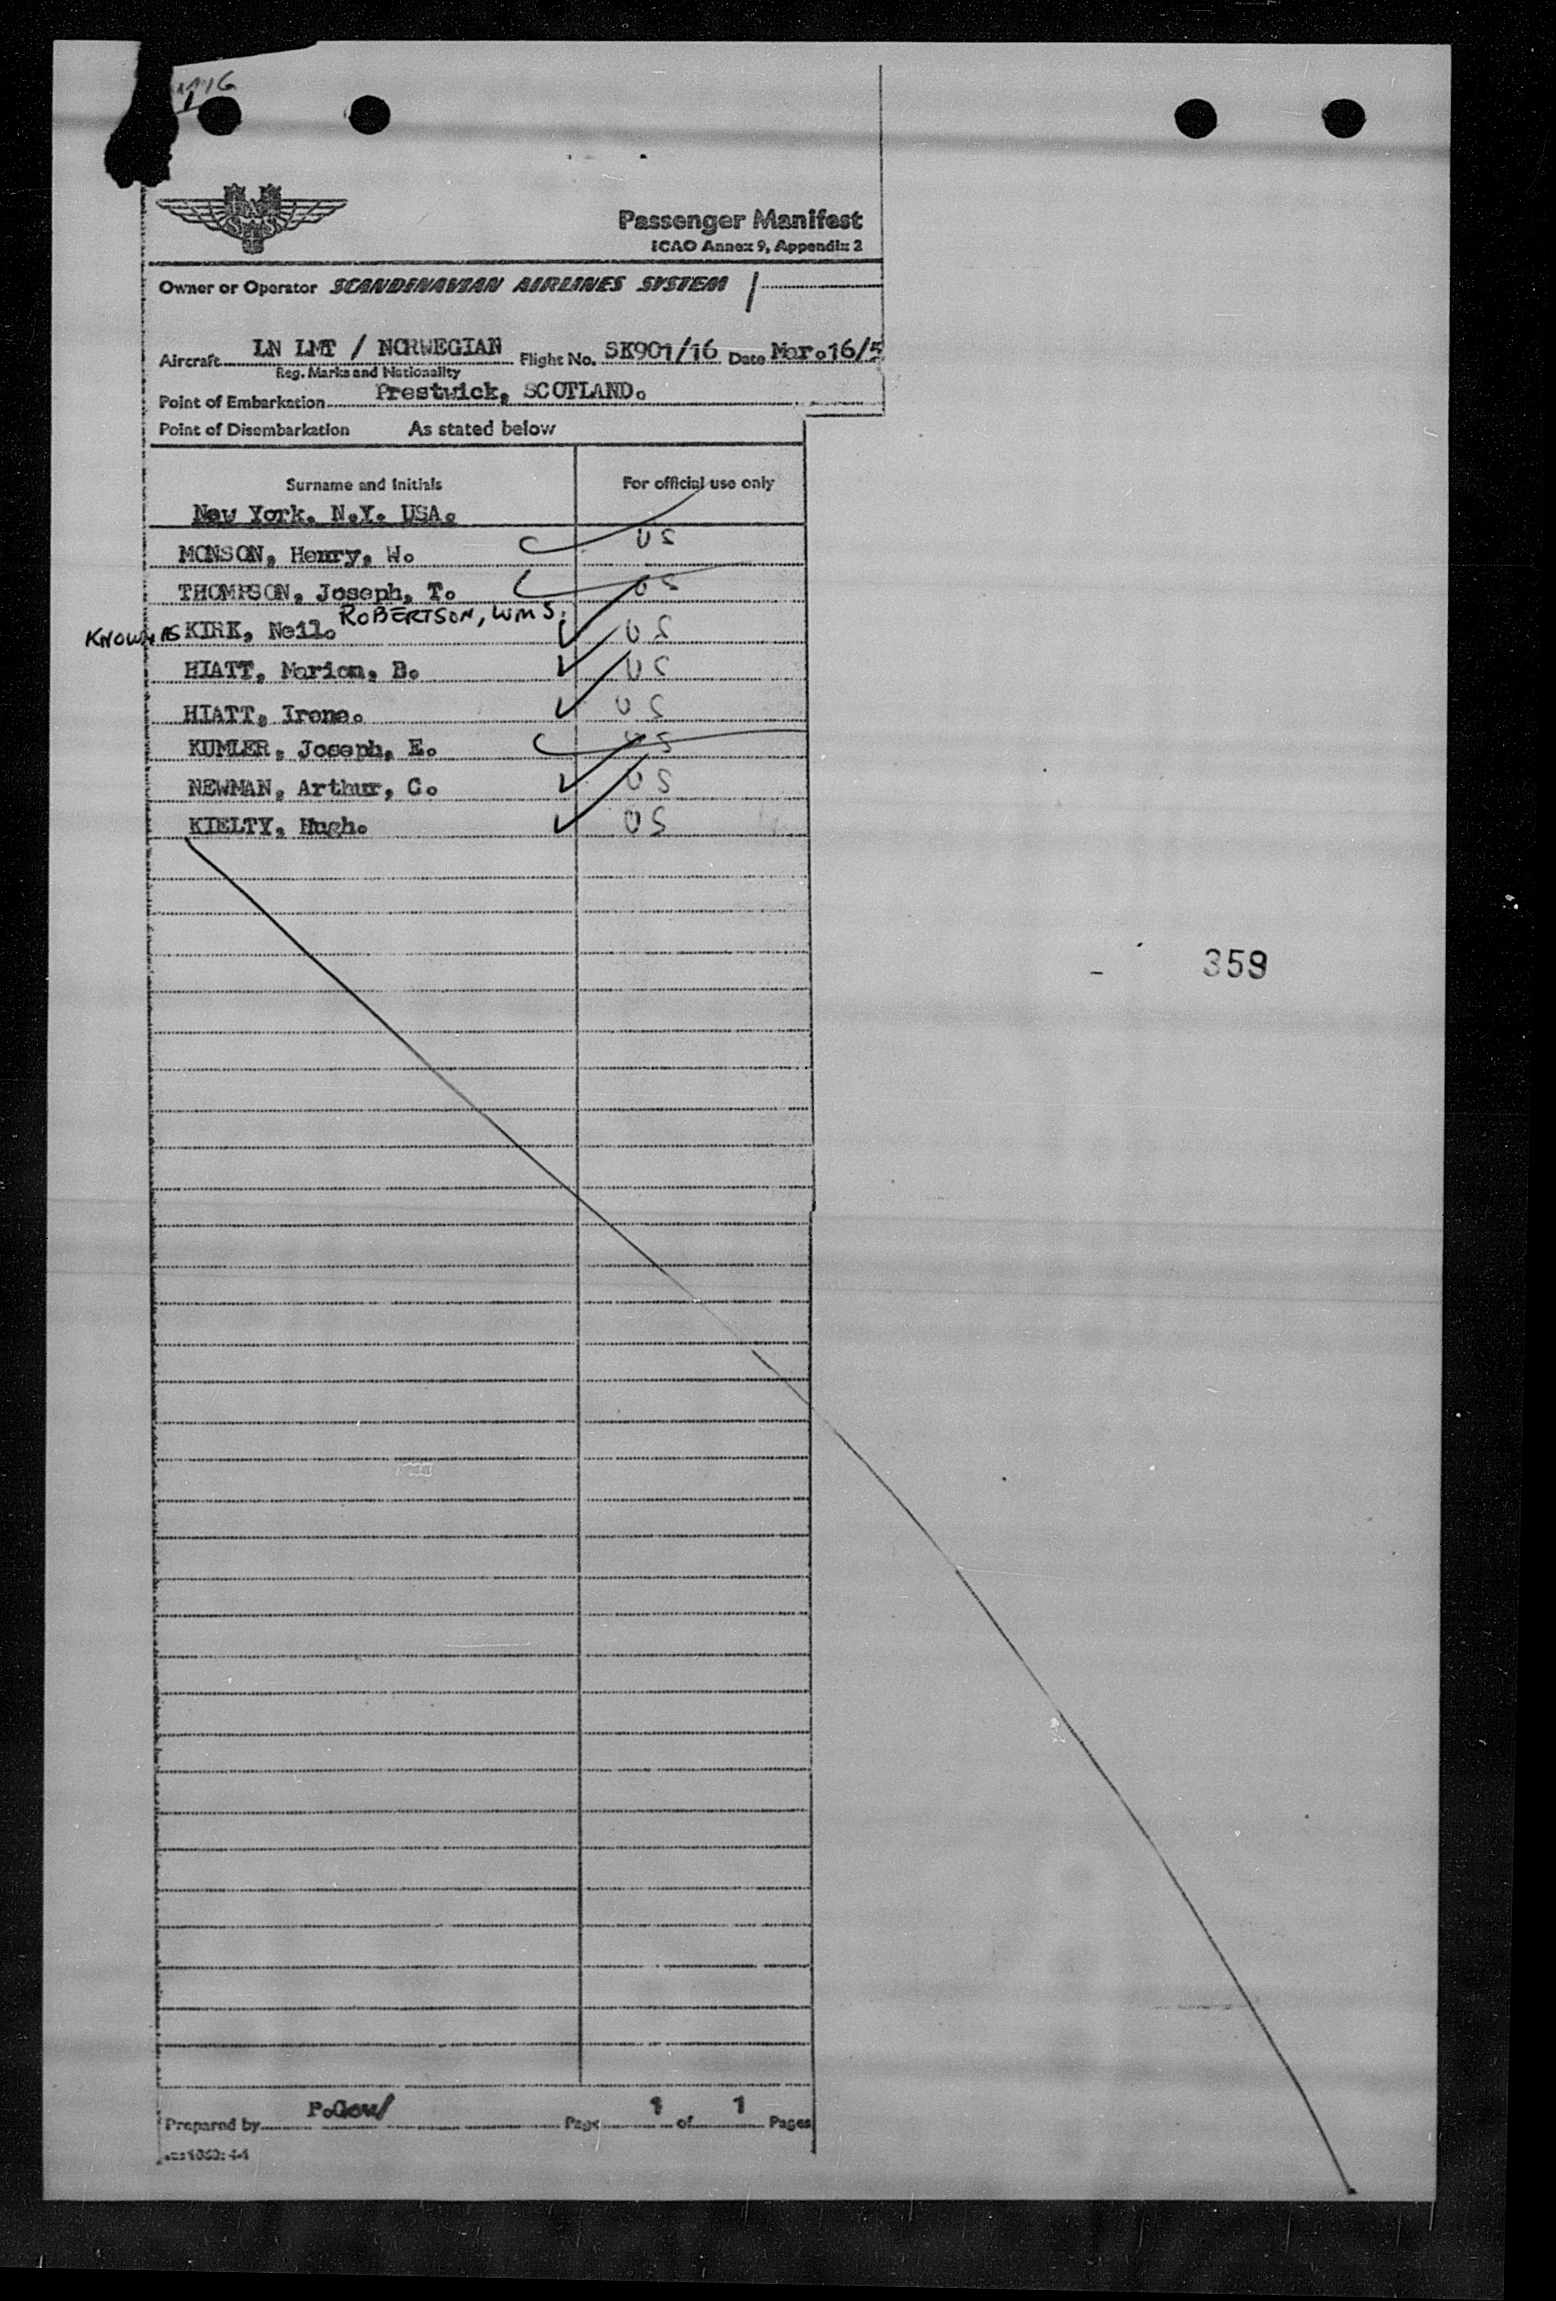 16
SAS
Passenger Manifest
ICAO Annex 9, Appendix 2
Owner or Operator SCANDINAVIAN AIRLINES SYSTEM
Aircraft LN LMT / NORWEGIAN Flight No. SK901/16 Date Mar.16/5
Reg. Marks and Nationality
Point of Embarkation Prestwick, SCOTLAND.
Point of Disembarkation As stated below
Surname and Initials For official use only
New York, N.Y. USA.
MONSON, Henry, W. US
THOMPSON, Joseph, T. US
ROBERTSON, WM S.
KNOWN AS KIRK, Neil. US
HIATT, Marion, B. US
HIATT, Irene. US
KUMLER, Joseph, E. US
NEWMAN, Arthur, C. US
KIELTY, Hugh. US
359
Prepared by P. Page 1 of 1 Pages